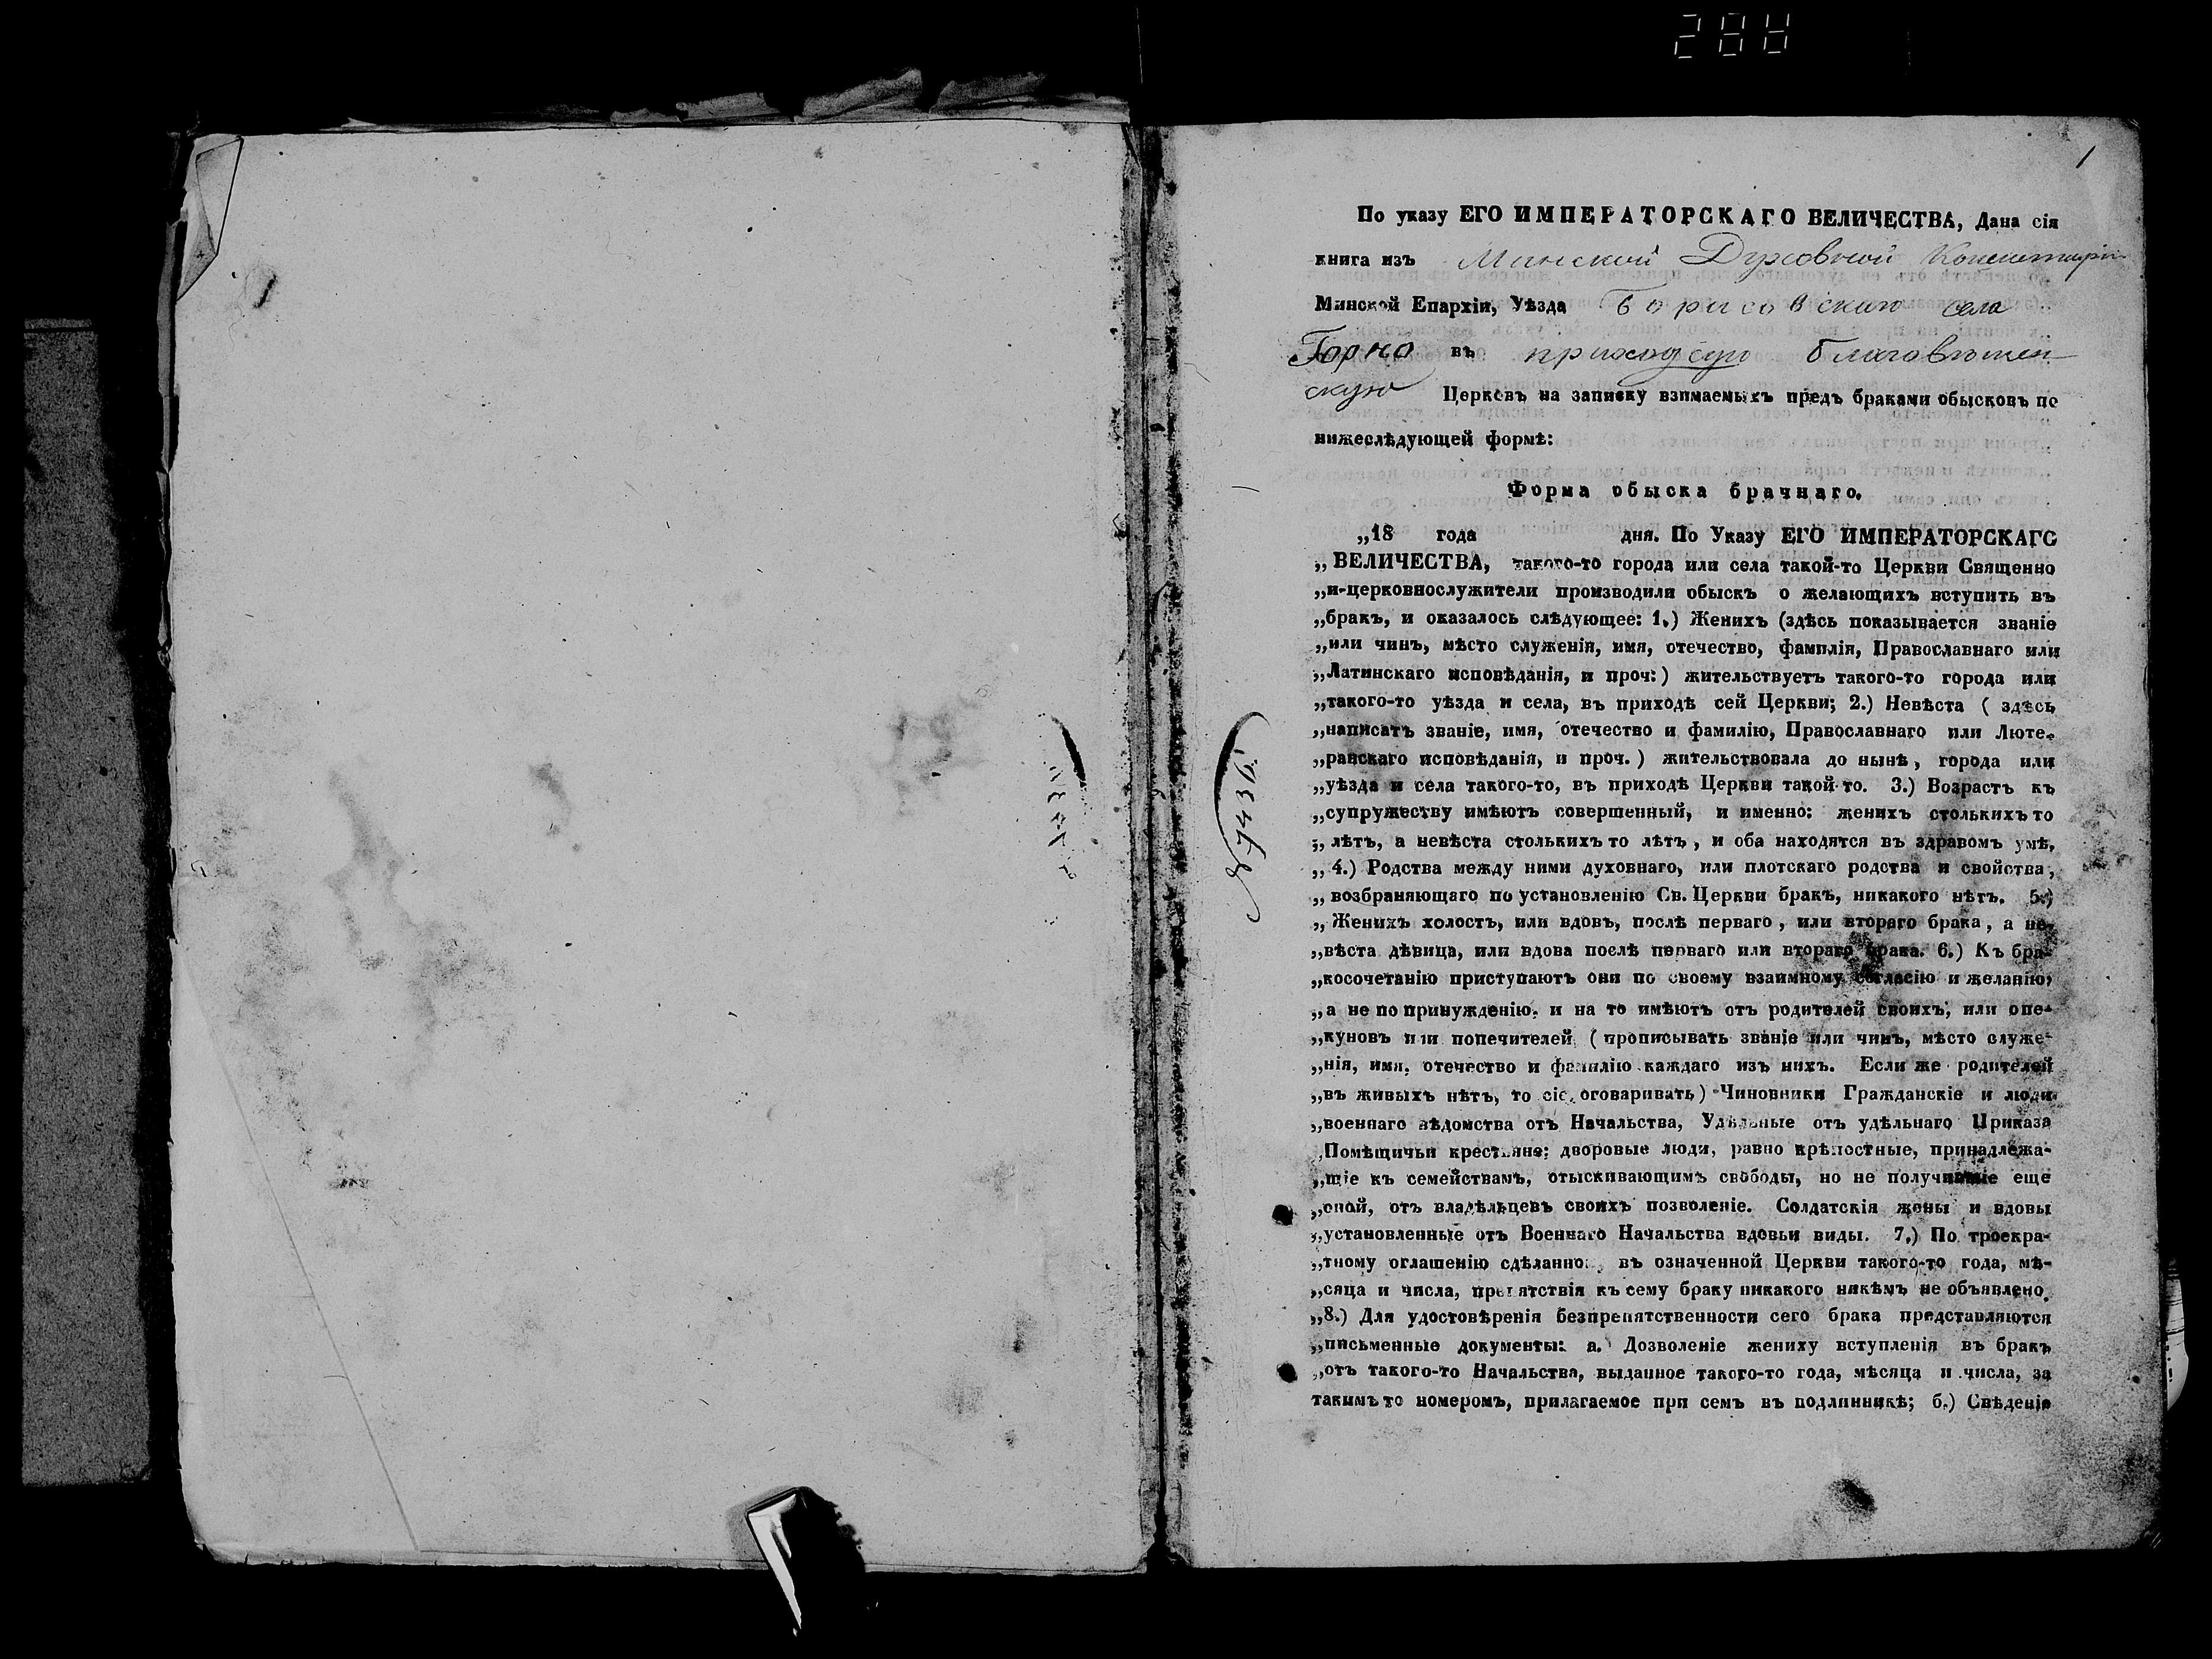 1
По указу ЕГО ИМПЕРАТОРСКАГО ВЕЛИЧЕСТВА, Дана сія
книга изъ Минской Духовной Консисторіи
Минской Епархіи, Уѣзда Борисовскаго села
Горно въ приходскую благовѣщен-
скую Церковь на записку взимаемыхъ предъ браками обысковъ по
нижеслѣдующей формѣ:
Форма обыска брачнаго.
„18 года дня. По Указу ЕГО ИМПЕРАТОРСКАГО
„ВЕЛИЧЕСТВА, такого-то города или села такой-то Церкви Священно
„и-церковнослужители производили обыскъ о желающихъ вступить въ
„бракъ, и оказалось слѣдующее: 1.) Женихъ (здѣсь показывается званіе
„или чинъ, мѣсто служенія, имя, отечество, фамилія, Православнаго или
„Латинскаго исповѣданія, и проч:) жительствуетъ такого-то города или
„такого-то уѣзда и села, въ приходѣ сей Церкви; 2.) Невѣста ( здѣсь
„написать званіе, имя, отечество и фамилію, Православнаго или Люте-
„ранскаго исповѣданія, и проч.) жительствовала до нынѣ, города или
„уѣзда и села такого-то, въ приходѣ Церкви такой-то. 3.) Возрастъ къ
„супружеству имѣютъ совершенный, и именно: женихъ столькихъ то
„лѣтъ, а невѣста столькихъ то лѣтъ, и оба находятся въ здравомъ умѣ,
„4.) Родства между ними духовнаго, или плотскаго родства и свойства,
„возбраняющаго по установленію Св. Церкви бракъ, никакого нѣтъ. 5.)
„Женихъ холостъ, или вдовъ, послѣ перваго, или втораго брака, а не-
„вѣста дѣвица, или вдова послѣ перваго или втораго брака. 6.) Къ бра-
„косочетанію приступаютъ они по своему взаимному согласію и желанію,
„а не по принужденію, и на то имѣютъ отъ родителей своихъ, или опе-
„куновъ или попечителей (прописывать званіе или чинъ, мѣсто служе-
„нія, имя, отечество и фамилію каждаго изъ нихъ. Если же родителей
„въ живыхъ нѣтъ, то сіе оговаривать) Чиновники Гражданскіе и люди
„военнаго вѣдомства отъ Начальства, Удѣльные отъ удѣльнаго Приказа
„Помѣщичьи крестьяне; дворовые люди, равно крѣпостные, принадлежа-
„щіе къ семействамъ, отыскивающимъ свободы, но не получившіе еще
„оной, отъ владѣльцевъ своихъ позволеніе. Солдатскія жены и вдовы
„установленные отъ Военнаго Начальства вдовьи виды. 7.) По троекра-
„тному оглашенію сдѣланному въ означенной Церкви такого-то года, мѣ-
„сяца и числа, препятствія къ сему браку никакого никѣмъ не объявлено.
„8.) Для удостовѣренія безпрепятственности сего брака представляются
„письменные документы: а. Дозволеніе жениху вступленія въ бракъ
„отъ такого-то Начальства, выданное такого-то года, мѣсяца и числа, за
такимъ то номеромъ, прилагаемое при семъ въ подлинникѣ; б.) Свѣденіе